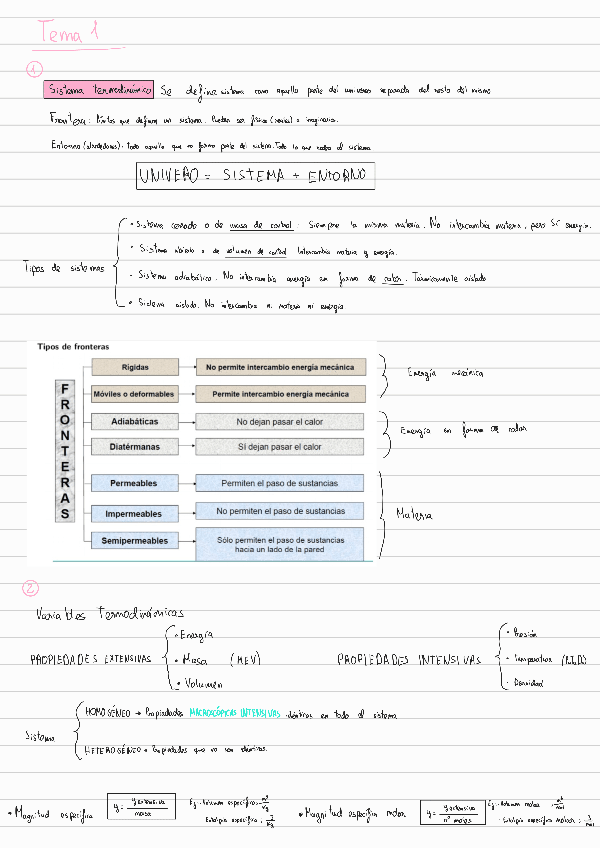 Tema 1
①
Sistema termodinámico Se define sistema como aquella parte del universo separada del resto del mismo
Frontera: Límites que definen un sistema. Pueden ser física (reales) o imaginarias.
Entorno (alrededores). Todo aquello que no forma parte del sistema. Todo lo que rodea al sistema
UNIVERO = SISTEMA + ENTORNO
Tipos de sistemas
• Sistema cerrado o de masa de control: Siempre la misma materia. No intercambia materia, pero SÍ energía.
• Sistema abierto o de volumen de control Intercambia materia y energía.
• Sistema adiabático. No intercambia energía en forma de calor. Térmicamente aislado
• Sistema aislado. No intercambia ni materia ni energía
Tipos de fronteras
FRONTERAS
Rígidas No permite intercambio energía mecánica
Móviles o deformables Permite intercambio energía mecánica
Energía mecánica
Adiabáticas No dejan pasar el calor
Diatérmanas Sí dejan pasar el calor
Energía en forma de calor
Permeables Permiten el paso de sustancias
Impermeables No permiten el paso de sustancias
Semipermeables Sólo permiten el paso de sustancias
hacia un lado de la pared
Materia
②
Variables Termodinámicas
PROPIEDADES EXTENSIVAS
• Energía
• Masa (MEV)
• Volumen
PROPIEDADES INTENSIVAS
• Presión
• Temperatura
• Densidad
Sistema
HOMOGÉNEO → Propiedades MACROSCÓPICAS INTENSIVAS idénticas en todo el sistema
HETEROGÉNEO → Propiedades que no son idénticas.
• Magnitud específica y = y extensiva / masa Eg: Volumen específico: m³/kg
Entalpía específica: J/kg
• Magnitud específica molar y = y extensiva / nº moles Eg: Volumen molar: m³/mol
Entalpía específica molar: J/mol